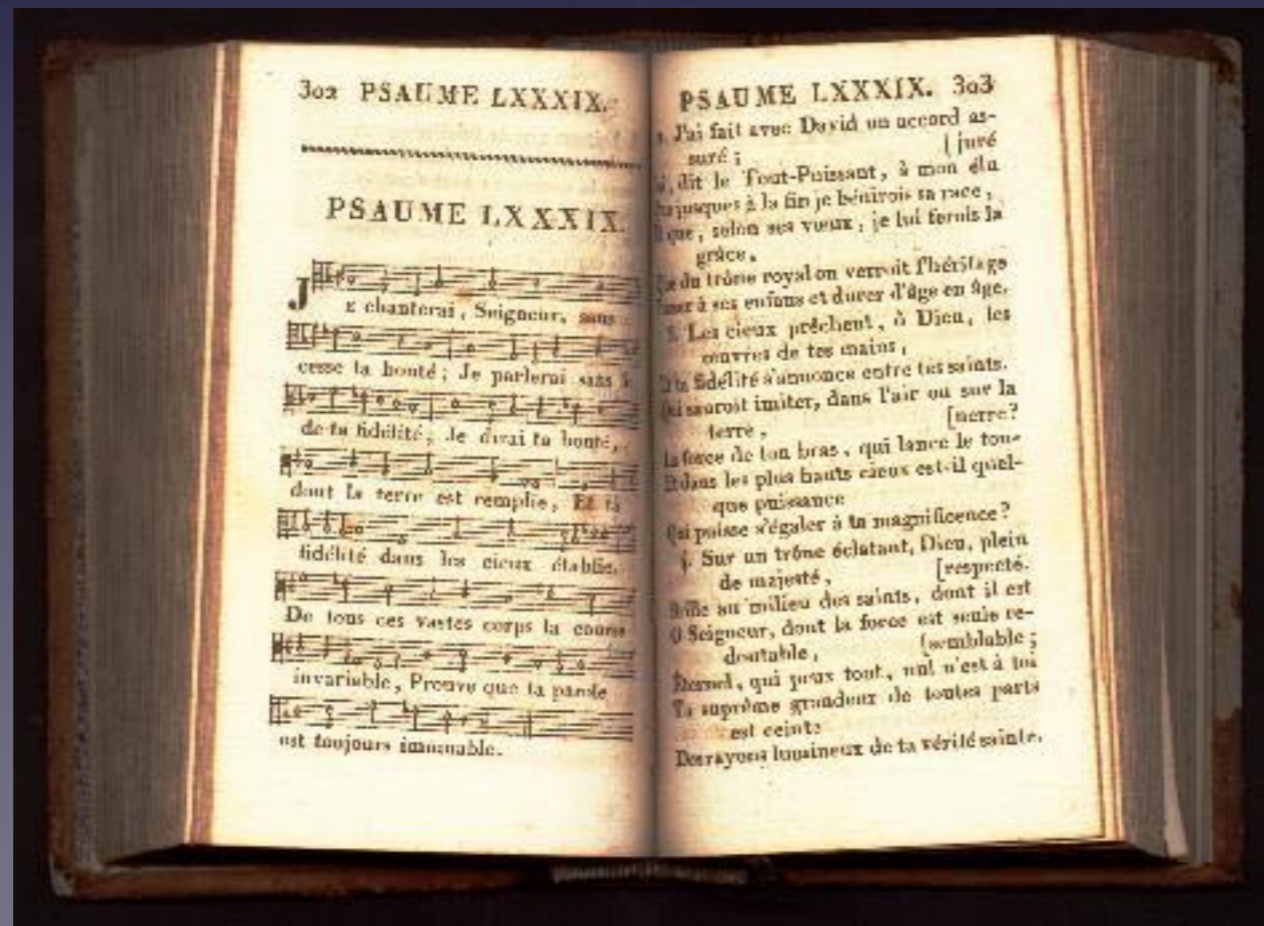 302 PSAUME LXXXIX.
PSAUME LXXXIX.
JE chanterai, Seigneur, sans
cesse ta bonté; Je parlerai sans
de ta fidélité; Je dirai ta bonté,
dont la terre est remplie, Et ta
fidélité dans les cieux établie.
De tous ces vastes corps la course
invariable, Prouve que ta parole
est toujours immuable.
PSAUME LXXXIX. 303
J'ai fait avec David un accord as-
suré; [juré
dit le Tout-Puissant, à mon élu
jusques à la fin je bénirois sa race,
que, selon ses vœux, je lui ferois la
grâce,
du trône royal on verroit l'héritage
à ses enfans et durer d'âge en âge.
3. Les cieux prêchent, ô Dieu, les
œuvres de tes mains,
ta fidélité s'annonce entre tes saints.
Qui sauroit imiter, dans l'air ou sur la
terre, [nerre?
La force de ton bras, qui lance le ton-
Et dans les plus hauts cieux est-il quel-
que puissance
Qui puisse s'égaler à ta magnificence?
4. Sur un trône éclatant, Dieu, plein
de majesté, [respecté.
au milieu des saints, dont il est
O Seigneur, dont la force est seule re-
doutable, [semblable;
Éternel, qui peux tout, nul n'est à toi
Ta suprême grandeur de toutes parts
est ceinte
Des rayons lumineux de ta vérité sainte.